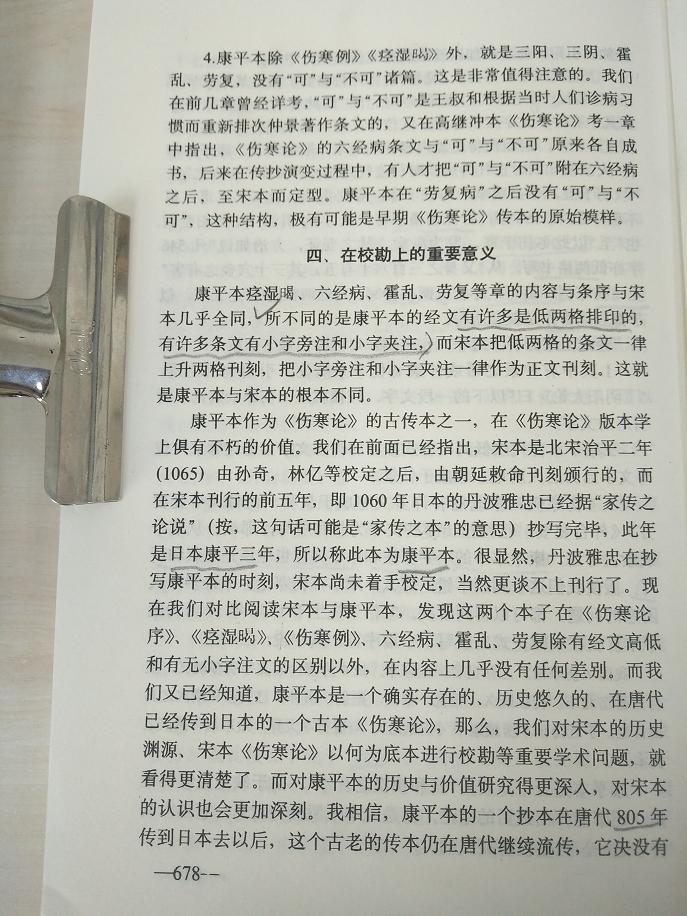 4.康平本除《伤寒例》《痉湿暍》外，就是三阳、三阴、霍
乱、劳复，没有“可”与“不可”诸篇。这是非常值得注意的。我们
在前几章曾经详考，“可”与“不可”是王叔和根据当时人们诊病习
惯而重新排次仲景著作条文的，又在高继冲本《伤寒论》考一章
中指出，《伤寒论》的六经病条文与“可”与“不可”原来各自成
书，后来在传抄演变过程中，有人才把“可”与“不可”附在六经病
之后，至宋本而定型。康平本在“劳复病”之后没有“可”与“不
可”，这种结构，极有可能是早期《伤寒论》传本的原始模样。
四、在校勘上的重要意义
康平本痉湿暍、六经病、霍乱、劳复等章的内容与条序与宋
本几乎全同，所不同的是康平本的经文有许多是低两格排印的，
有许多条文有小字旁注和小字夹注，而宋本把低两格的条文一律
上升两格刊刻，把小字旁注和小字夹注一律作为正文刊刻。这就
是康平本与宋本的根本不同。
康平本作为《伤寒论》的古传本之一，在《伤寒论》版本学
上俱有不朽的价值。我们在前面已经指出，宋本是北宋治平二年
(1065) 由孙奇，林亿等校定之后，由朝延敕命刊刻颁行的，而
在宋本刊行的前五年，即 1060 年日本的丹波雅忠已经据“家传之
论说”（按，这句话可能是“家传之本”的意思）抄写完毕，此年
是日本康平三年，所以称此本为康平本。很显然，丹波雅忠在抄
写康平本的时刻，宋本尚未着手校定，当然更谈不上刊行了。现
在我们对比阅读宋本与康平本，发现这两个本子在《伤寒论
序》、《痉湿暍》、《伤寒例》、六经病、霍乱、劳复除有经文高低
和有无小字注文的区别以外，在内容上几乎没有任何差别。而我
们又已经知道，康平本是一个确实存在的、历史悠久的、在唐代
已经传到日本的一个古本《伤寒论》，那么，我们对宋本的历史
渊源、宋本《伤寒论》以何为底本进行校勘等重要学术问题，就
看得更清楚了。而对康平本的历史与价值研究得更深入，对宋本
的认识也会更加深刻。我相信，康平本的一个抄本在唐代 805 年
传到日本去以后，这个古老的传本仍在唐代继续流传，它决没有
—678--